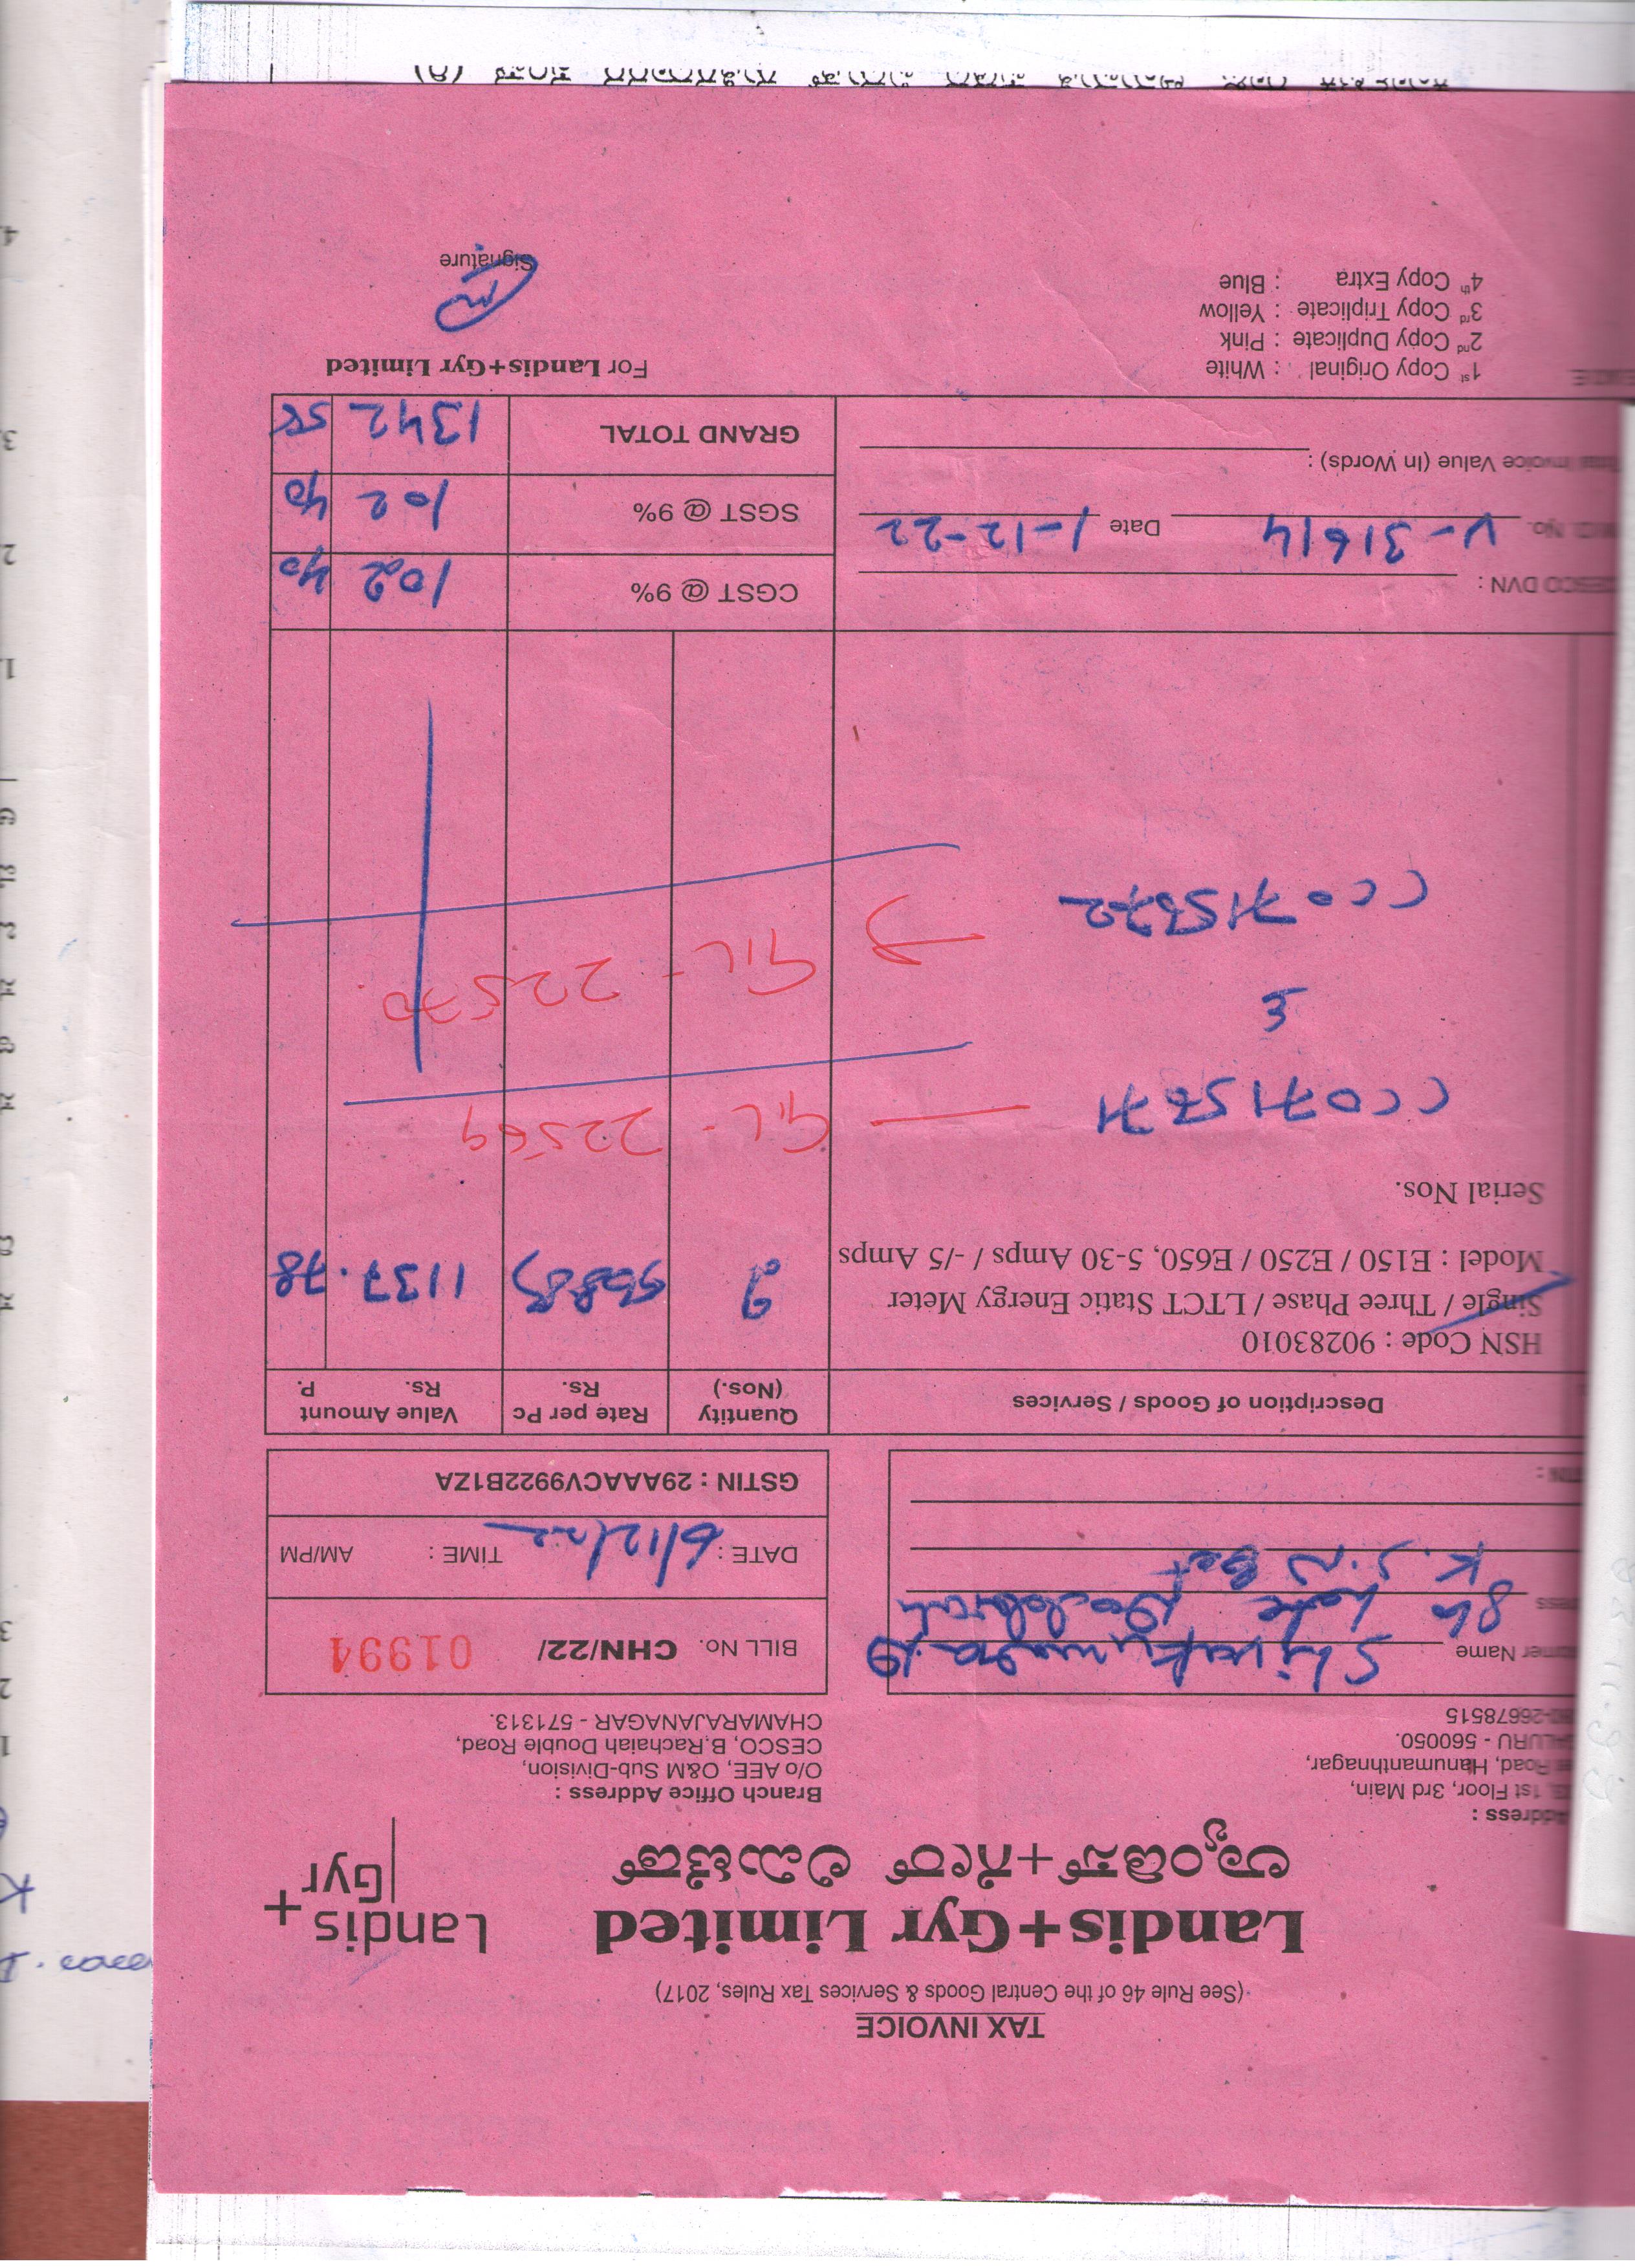 TAX INVOICE
(See Rule 46 of the Central Goods & Services Tax Rules, 2017)
Landis+Gyr Limited
ಲ್ಯಾಂಡಿಸ್+ಗೇರ್ ಲಿಮಿಟೆಡ್
Landis
Gyr
+
Address :
1st Floor, 3rd Main,
Road, Hanumanthnagar,
- 560050.
26678515
Branch Office Address :
O/o AEE, O&M Sub-Division,
CESCO, B.Rachaiah Double Road,
CHAMARAJANAGAR - 571313.
Name Shivakumara
K.
BILL No. CHN/22/ 01994
DATE : 6/12/22 TIME : AM/PM
GSTIN : 29AAACV9922B1ZA
Description of Goods / Services
Quantity (Nos.)
Rate per Pc Rs.
Value Amount Rs. P.
HSN Code : 90283010
Single / Three Phase / LTCT Static Energy Meter
Model : E150 / E250 / E650, 5-30 Amps / -/5 Amps
2 1137.78
Serial Nos.
CC0715671 22569
CC0715672 22570
DVN :
CGST @ 9% 102 40
No. V-31614 Date 1-12-22
SGST @ 9% 102 40
Invoice Value (In Words) :
GRAND TOTAL 1342 58
1st Copy Original : White
2nd Copy Duplicate : Pink
3rd Copy Triplicate : Yellow
4th Copy Extra : Blue
For Landis+Gyr Limited
Signature